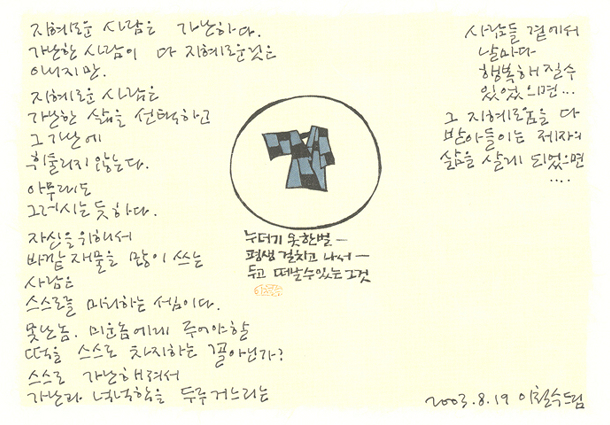 지혜로운 사람은 가난하다.
가난한 사람이 다 지혜로운것은
아니지만.
지혜로운 사람은
가난한 삶을 선택하고
그 가난에
휘둘리지 않는다.
아무래도
그러시는 듯하다.
자신을 위해서
바깥 재물을 많이 쓰는
사람은
스스로를 마다하는 셈이다.
못난놈. 미운놈에게 주어야할
떡을 스스로 차지하는 꼴아닌가?
스스로 가난해려서
가난과 넉넉함을 두루거느리는
누더기 옷한벌 —
평생 걸치고 나서 —
두고 떠날수있는 그것
사람들 곁에서
날마다
행복해 질수
있었으면...
그 지혜로움을 다
받아들이는 제자의
삶을 살게 되었으면
....
2003.8.19 이철수드림